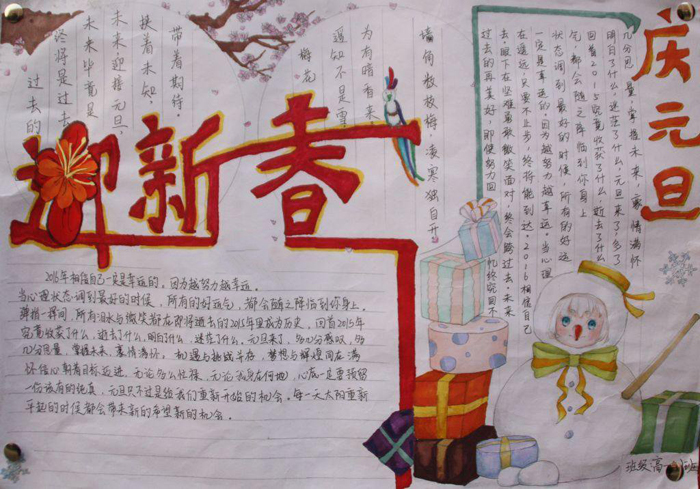 庆元旦
几分思 量,掌握未来,豪情满怀
明白了什么,迷茫了什么,元旦来了,多了
回首2015究竟收获了什么,逝去了什么
气,都会随之降临到你身上
状态调到最好的时候,所有的好运
一定是幸运的。因为越努力越幸运。当心理
在遥远,只要不止步,终将能到达。2016相信自己
去。眼下在坚难勇敢微笑面对,终会跨过去。未来
过去的再美好,即使努力回 忆终究回不
墙角数枝梅,凌寒独自开
为有暗香来
遥知不是雪
梅花
带着期待,
未知,
未来迎接元旦,
未来毕竟是
终将是过去
过去的
迎新春
2016年相信自己一定是幸运的。因为越努力越幸运。
当心理状态调到最好的时候,所有的好运气,都会随之降临到你身上。
弹指一挥间,所有泪水与微笑都在即将逝去的2015年里成为历史,回首2015年
究竟收获了什么,逝去了什么,明白什么,迷茫了什么,元旦来了,多几分感叹,多
几分思量,掌握未来,豪情满怀,机遇与挑战并存,梦想与辉煌同在,满
怀信心朝着目标迈进,无论多么忙碌,无论我身在何地,心底一定要预留
一份该有的纯真,元旦只不过是给我们重新开始的机会。每一天太阳重新
升起的时候都会带来新的希望新的机会。
班级高一
班